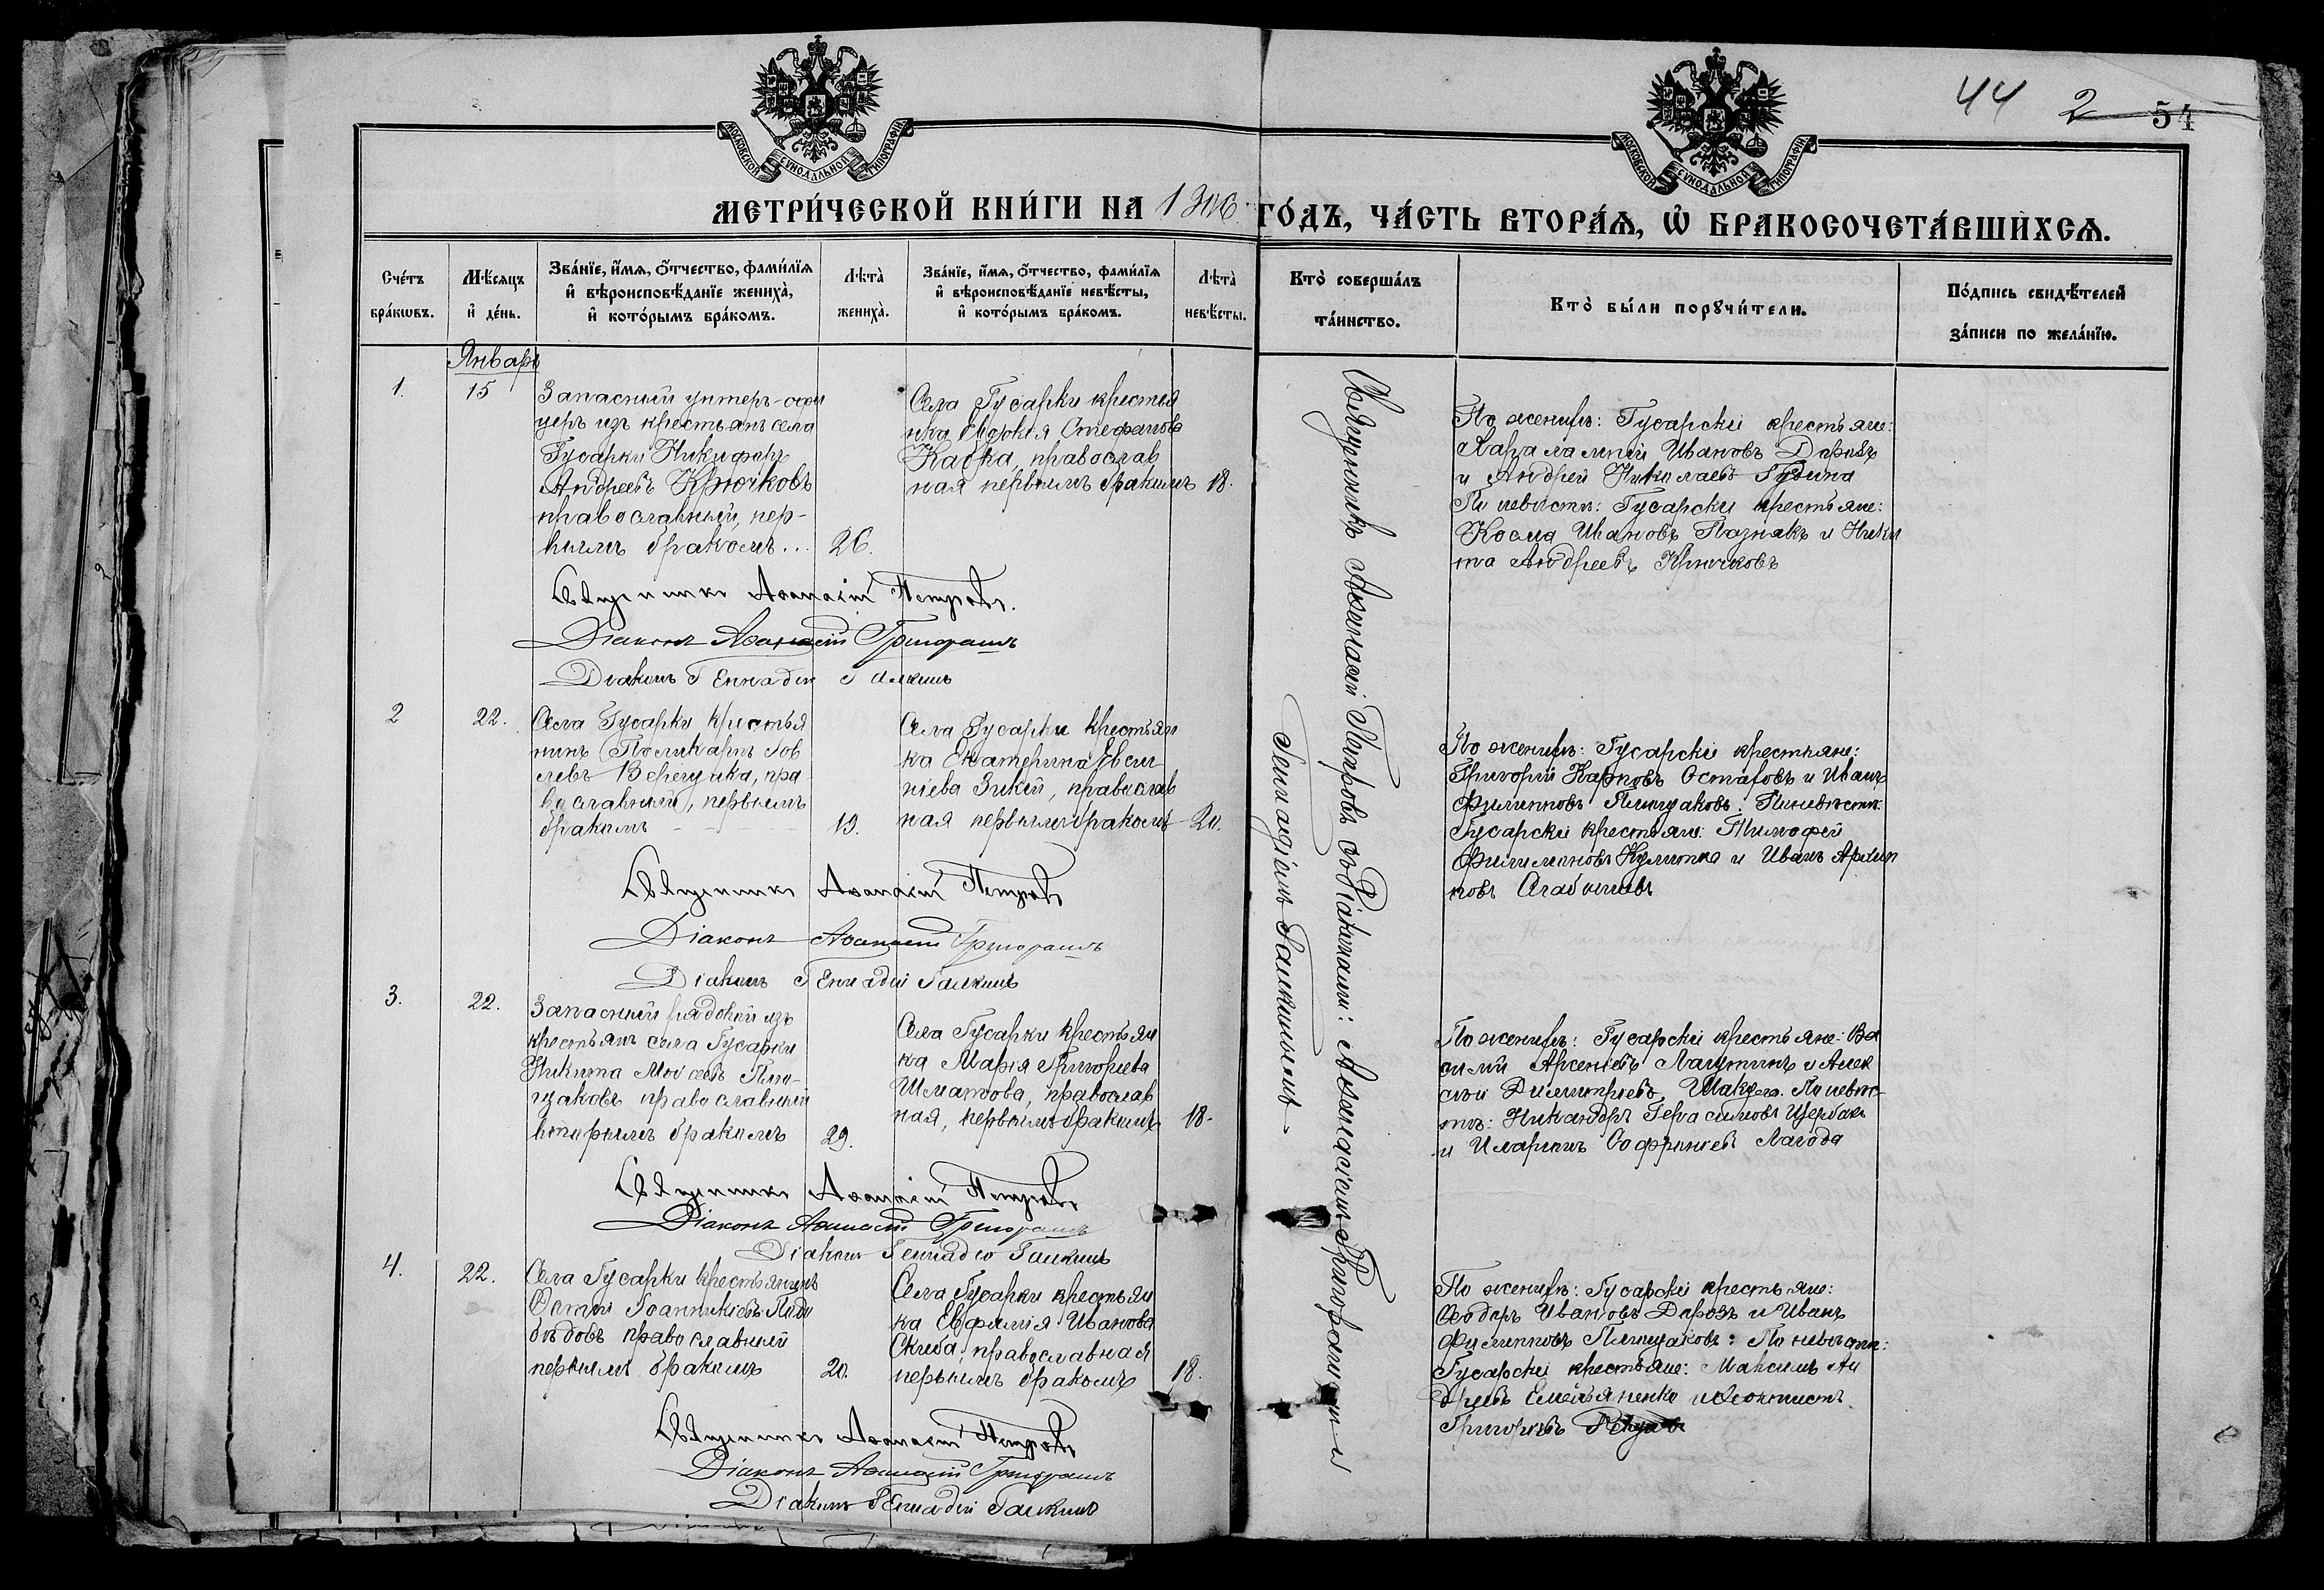 44 2 54
МОСКОВСКОЙ СУНОДАЛЬНОЙ ТИПОГРАФІИ
МОСКОВСКОЙ СУНОДАЛЬНОЙ ТИПОГРАФІИ
МЕТРИ́ЧЕСКОЙ КНИ́ГИ НА 1906 ГО́ДЪ, ЧА́СТЬ ВТОРА́Я, Ѿ БРАКОСОЧЕТА́ВШИХСЯ.
Сче́тъ бра́кωвъ.
Мѣ́сяцъ и҆ де́нь.
Зва́нїе, и҆́мя, ѻ҆́тчество, фами́лїя
и҆ вѣроисповѣ́данїе жениха̀,
и҆ кото́рымъ бра́комъ.
Лѣта̀ жениха̀.
Зва́нїе, и҆́мя, ѻ҆́тчество, фами́лїя
и҆ вѣроисповѣ́данїе невѣ́сты,
и҆ кото́рымъ бра́комъ.
Лѣта̀ невѣ́сты.
Кто̀ соверша́лъ
та́инство.
Кто̀ бы́ли порꙋчи́тели.
По́дпись свидѣ́телей
за́писи по жела́нїю.
Январь
1.
15
Запасный унтеръ-офи
церъ изъ крестьянъ села
Гусарки Никифоръ
Андреевъ Крючковъ
православный, пер-
вымъ бракомъ...
26.
Села Гусарки крестья
нка Евдокія Стефанова
Каска, православ
ная первымъ бракомъ
18.
По женихѣ: Гусарскіе крестьяне:
Харалампій Ивановъ Дорозъ
и Андрей Николаевъ Гудина
По невѣстѣ: Гусарскіе крестьяне:
Косма Ивановъ Познякъ и Ники
та Андреевъ Крючковъ
Священникъ Аѳанасій Петровъ.
Діаконъ Аѳанасій Григорашъ
Діаконъ Геннадій Галкинъ
2
22.
Села Гусарки крестья
нинъ Поликарпъ Іов
левъ Верещака, пра
вославный, первымъ
бракомъ
19.
Села Гусарки крестьян
ка Екатерина Евси
ніева Зикій, православ
ная первымъ бракомъ
20.
По женихѣ: Гусарскіе крестьяне:
Григорій Карповъ Остаповъ и Иванъ
Филипповъ Плющаковъ. По невѣстѣ:
Гусарскіе крестьяне: Тимофей
Филимоновъ Кулитка и Иванъ Архип
повъ
Священникъ Аѳанасій Петровъ
Діаконъ Аѳанасій Григорашъ
Діаконъ Геннадій Галкинъ
3.
22.
Запасный рядовой изъ
крестьянъ села Гусарки
Никита Моѵсеевъ Плю-
щаковъ православный
вторымъ бракомъ
29.
Села Гусарки крестьян
ка Марія Григорьева
Шматова, православ
ная, первымъ бракомъ
18.
По женихѣ: Гусарскіе крестьяне: Ва
силій Арсеніевъ Лагутинъ и Алек
сѣй Димитріевъ По невѣс-
тѣ: Никандръ Герасимовъ Щербак
и Иларіонъ Софроніевъ Лагода
Священникъ Аѳанасій Петровъ
Діаконъ Аѳанасій Григорашъ
Діаконъ Геннадій Галкинъ
4.
22.
Села Гусарки крестьянинъ
Іоанникіевъ
православный
первымъ бракомъ
20.
Села Гусарки крестьян
ка Евфимія Иванова
Скиба, православная
первымъ бракомъ
18.
По женихѣ: Гусарскіе крестьяне:
Ѳеодоръ Ивановъ Дорозъ и Иванъ
Филипповъ Плющаковъ: По невѣстѣ:
Гусарскіе крестьяне: Максимъ Ан
дреевъ Емельяненко и Ѳеоктистъ
Григорьевъ
Священникъ Аѳанасій Петровъ
Діаконъ Аѳанасій Григорашъ
Діаконъ Геннадій Галкинъ
Священникъ Аѳанасій Петровъ съ Діаконами: Аѳанасіемъ Григорашемъ и
Геннадіемъ Галкинымъ